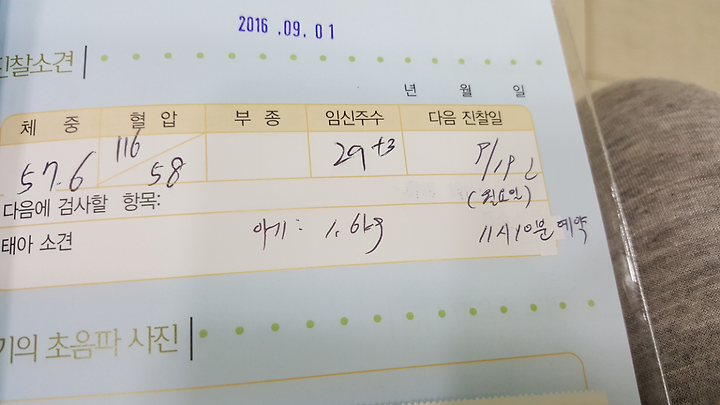 2016 .09. 01
진찰소견
년 월 일
체 중 혈 압 부 종 임신주수 다음 진찰일
57.6 116/58 29+3 9/19
(월요일)
다음에 검사할 항목:
태아 소견 아기: 1.6kg 11시10분 예약
기의 초음파 사진